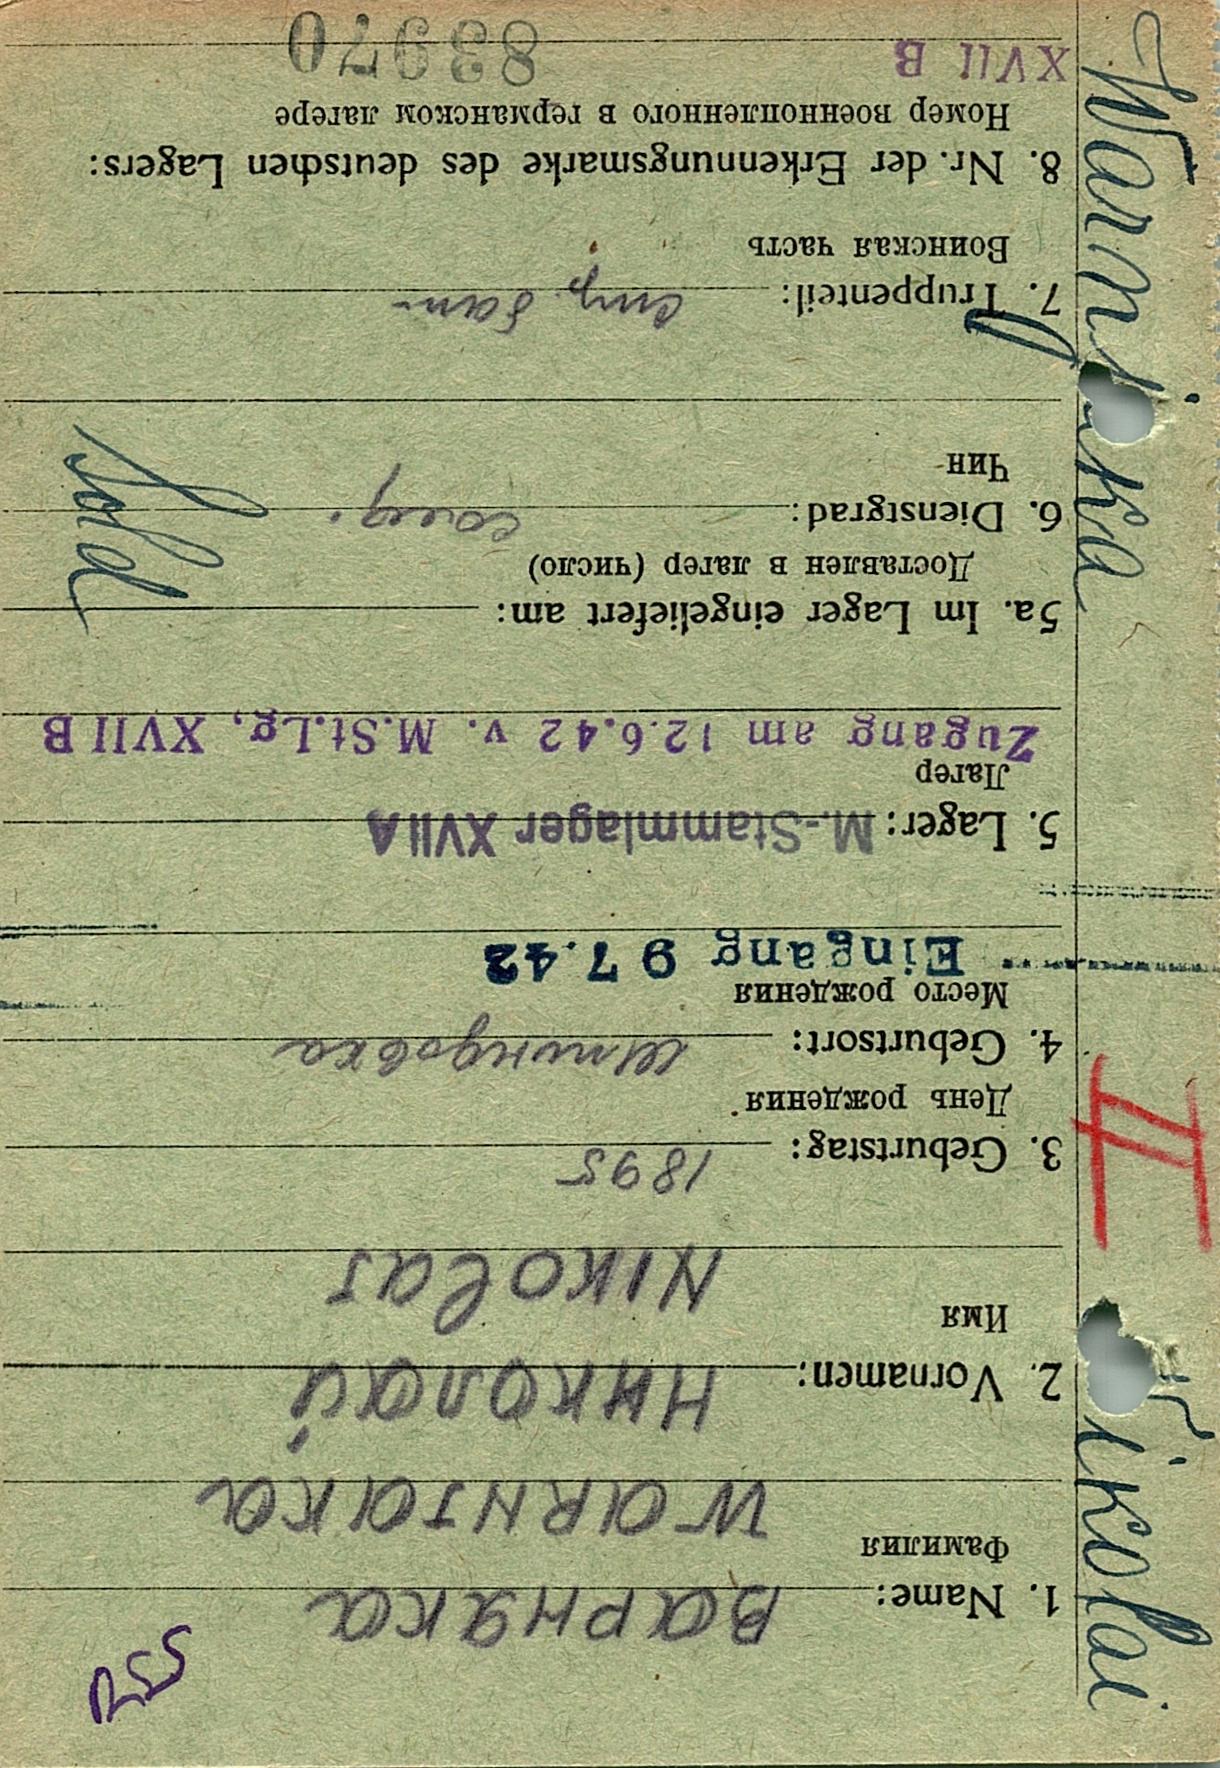 R55
1. Name: Варняка
Фамилия
Warnjaka
2. Vornamen: Николай
Имя
Nikolaj
3. Geburtstag: 1895
День рождения
4. Geburtsort: Шпиндовка
Место рождения
Eingang 9 7.42
5. Lager: M.-Stammlager XVII A
Лагер
Zugang am 12.6.42 v. M.St.Lg, XVII B
5a. Im Lager eingeliefert am:
Доставлен в лагер (число)
6. Dienstgrad: солд.
Чин
Sold
7. Truppenteil: стр. бат.
Воинская часть
8. Nr. der Erkennungsmarke des deutschen Lagers:
Номер военнопленного в германском лагере
XVII B 83970
Nikolai II Warnjaka